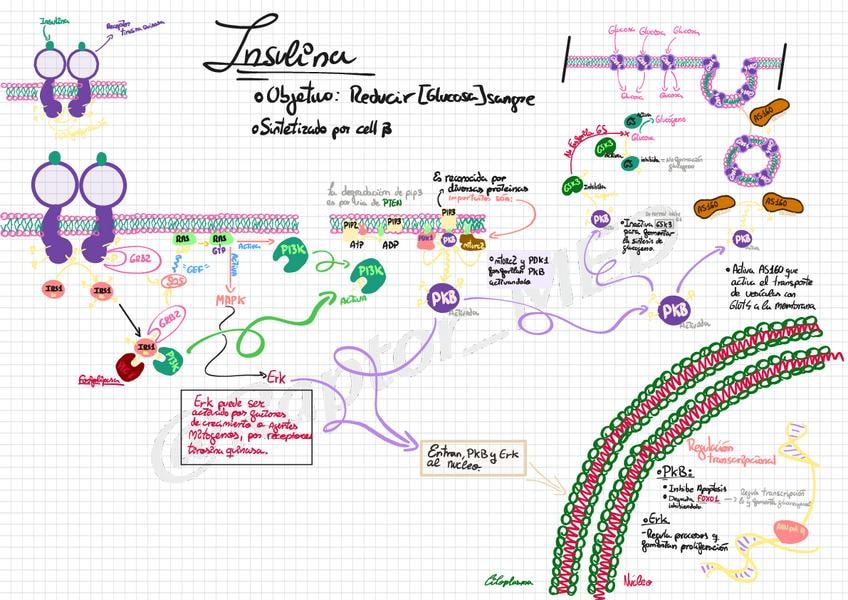 Insulina
Receptor
tirosina quinasa
Insulina
• Objetivo: Reducir [Glucosa] sangre
• Sintetizado por cell β
Glucosa Glucosa Glucosa
Glucosa Glucosa
AS160
Activa
GS
Glucógeno
Glucosa
No fosforila GS
GSK3
Activa
GS
inhibida
GSK3
Inhibida
AS160
AS160
PKB
PKB
• Inactiva GSK3
para fomentar
la síntesis de
glucógeno.
• Activa AS160 que
activa el transporte
de vesículas con
Glut4 a la membrana
Es reconocida por
diversas proteínas
Importantes son:
la degradación de pip3
es por vía de PTEN
PIP2
PIP3
PIP3
ATP
ADP
PDK1
PKB
mtorc2
• mtorc2 y PDK1
fosforilan PKB
activandola
PKB
Activada
PKB
Activada
GRB2
SOS
RAS
RAS
GTP
"GEF"
ACTIVA
ACTIVA
PI3K
PI3K
ACTIVA
MAPK
IRS1
IRS1
GRB2
IRS1
PI3K
Fosfolipasa
Erk
Erk puede ser
activado por factores
de crecimiento o Agentes
Mitogenos, por receptores
tirosina quinasa.
Entran, PKB y Erk
al núcleo.
Regulación
transcripcional
• PKB:
• Inhibe Apoptosis
• Degrada FOXO1
inhibiendolo
• Erk
- Regula procesos y
fomentan proliferación
Citoplasma
Núcleo
Raptor_MED